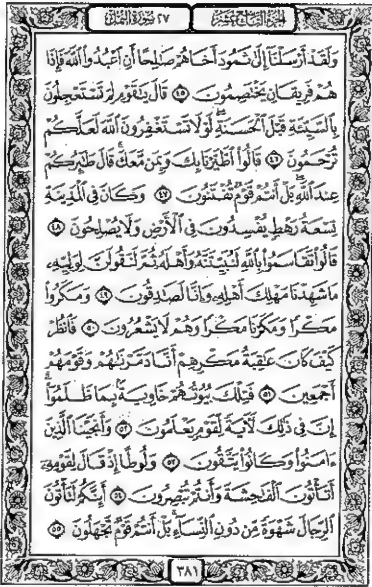 الجزء التاسع عشر
٢٧ سورة النمل
وَلَقَدْ أَرْسَلْنَآ إِلَىٰ ثَمُودَ أَخَاهُمْ صَٰلِحًا أَنِ ٱعْبُدُوا۟ ٱللَّهَ فَإِذَا
هُمْ فَرِيقَانِ يَخْتَصِمُونَ ٤٥ قَالَ يَٰقَوْمِ لِمَ تَسْتَعْجِلُونَ
بِٱلسَّيِّئَةِ قَبْلَ ٱلْحَسَنَةِ ۖ لَوْلَا تَسْتَغْفِرُونَ ٱللَّهَ لَعَلَّكُمْ
تُرْحَمُونَ ٤٦ قَالُوا۟ ٱطَّيَّرْنَا بِكَ وَبِمَن مَّعَكَ ۚ قَالَ طَٰٓئِرُكُمْ
عِندَ ٱللَّهِ ۖ بَلْ أَنتُمْ قَوْمٌ تُفْتَنُونَ ٤٧ وَكَانَ فِى ٱلْمَدِينَةِ
تِسْعَةُ رَهْطٍ يُفْسِدُونَ فِى ٱلْأَرْضِ وَلَا يُصْلِحُونَ ٤٨
قَالُوا۟ تَقَاسَمُوا۟ بِٱللَّهِ لَنُبَيِّتَنَّهُۥ وَأَهْلَهُۥ ثُمَّ لَنَقُولَنَّ لِوَلِيِّهِۦ
مَا شَهِدْنَا مَهْلِكَ أَهْلِهِۦ وَإِنَّا لَصَٰدِقُونَ ٤٩ وَمَكَرُوا۟
مَكْرًا وَمَكَرْنَا مَكْرًا وَهُمْ لَا يَشْعُرُونَ ٥٠ فَٱنظُرْ
كَيْفَ كَانَ عَٰقِبَةُ مَكْرِهِمْ أَنَّا دَمَّرْنَٰهُمْ وَقَوْمَهُمْ
أَجْمَعِينَ ٥١ فَتِلْكَ بُيُوتُهُمْ خَاوِيَةًۢ بِمَا ظَلَمُوٓا۟ ۗ
إِنَّ فِى ذَٰلِكَ لَءَايَةً لِّقَوْمٍ يَعْلَمُونَ ٥٢ وَأَنجَيْنَا ٱلَّذِينَ
ءَامَنُوا۟ وَكَانُوا۟ يَتَّقُونَ ٥٣ وَلُوطًا إِذْ قَالَ لِقَوْمِهِۦٓ
أَتَأْتُونَ ٱلْفَٰحِشَةَ وَأَنتُمْ تُبْصِرُونَ ٥٤ أَئِنَّكُمْ لَتَأْتُونَ
ٱلرِّجَالَ شَهْوَةً مِّن دُونِ ٱلنِّسَآءِ ۚ بَلْ أَنتُمْ قَوْمٌ تَجْهَلُونَ ٥٥
٣٨١